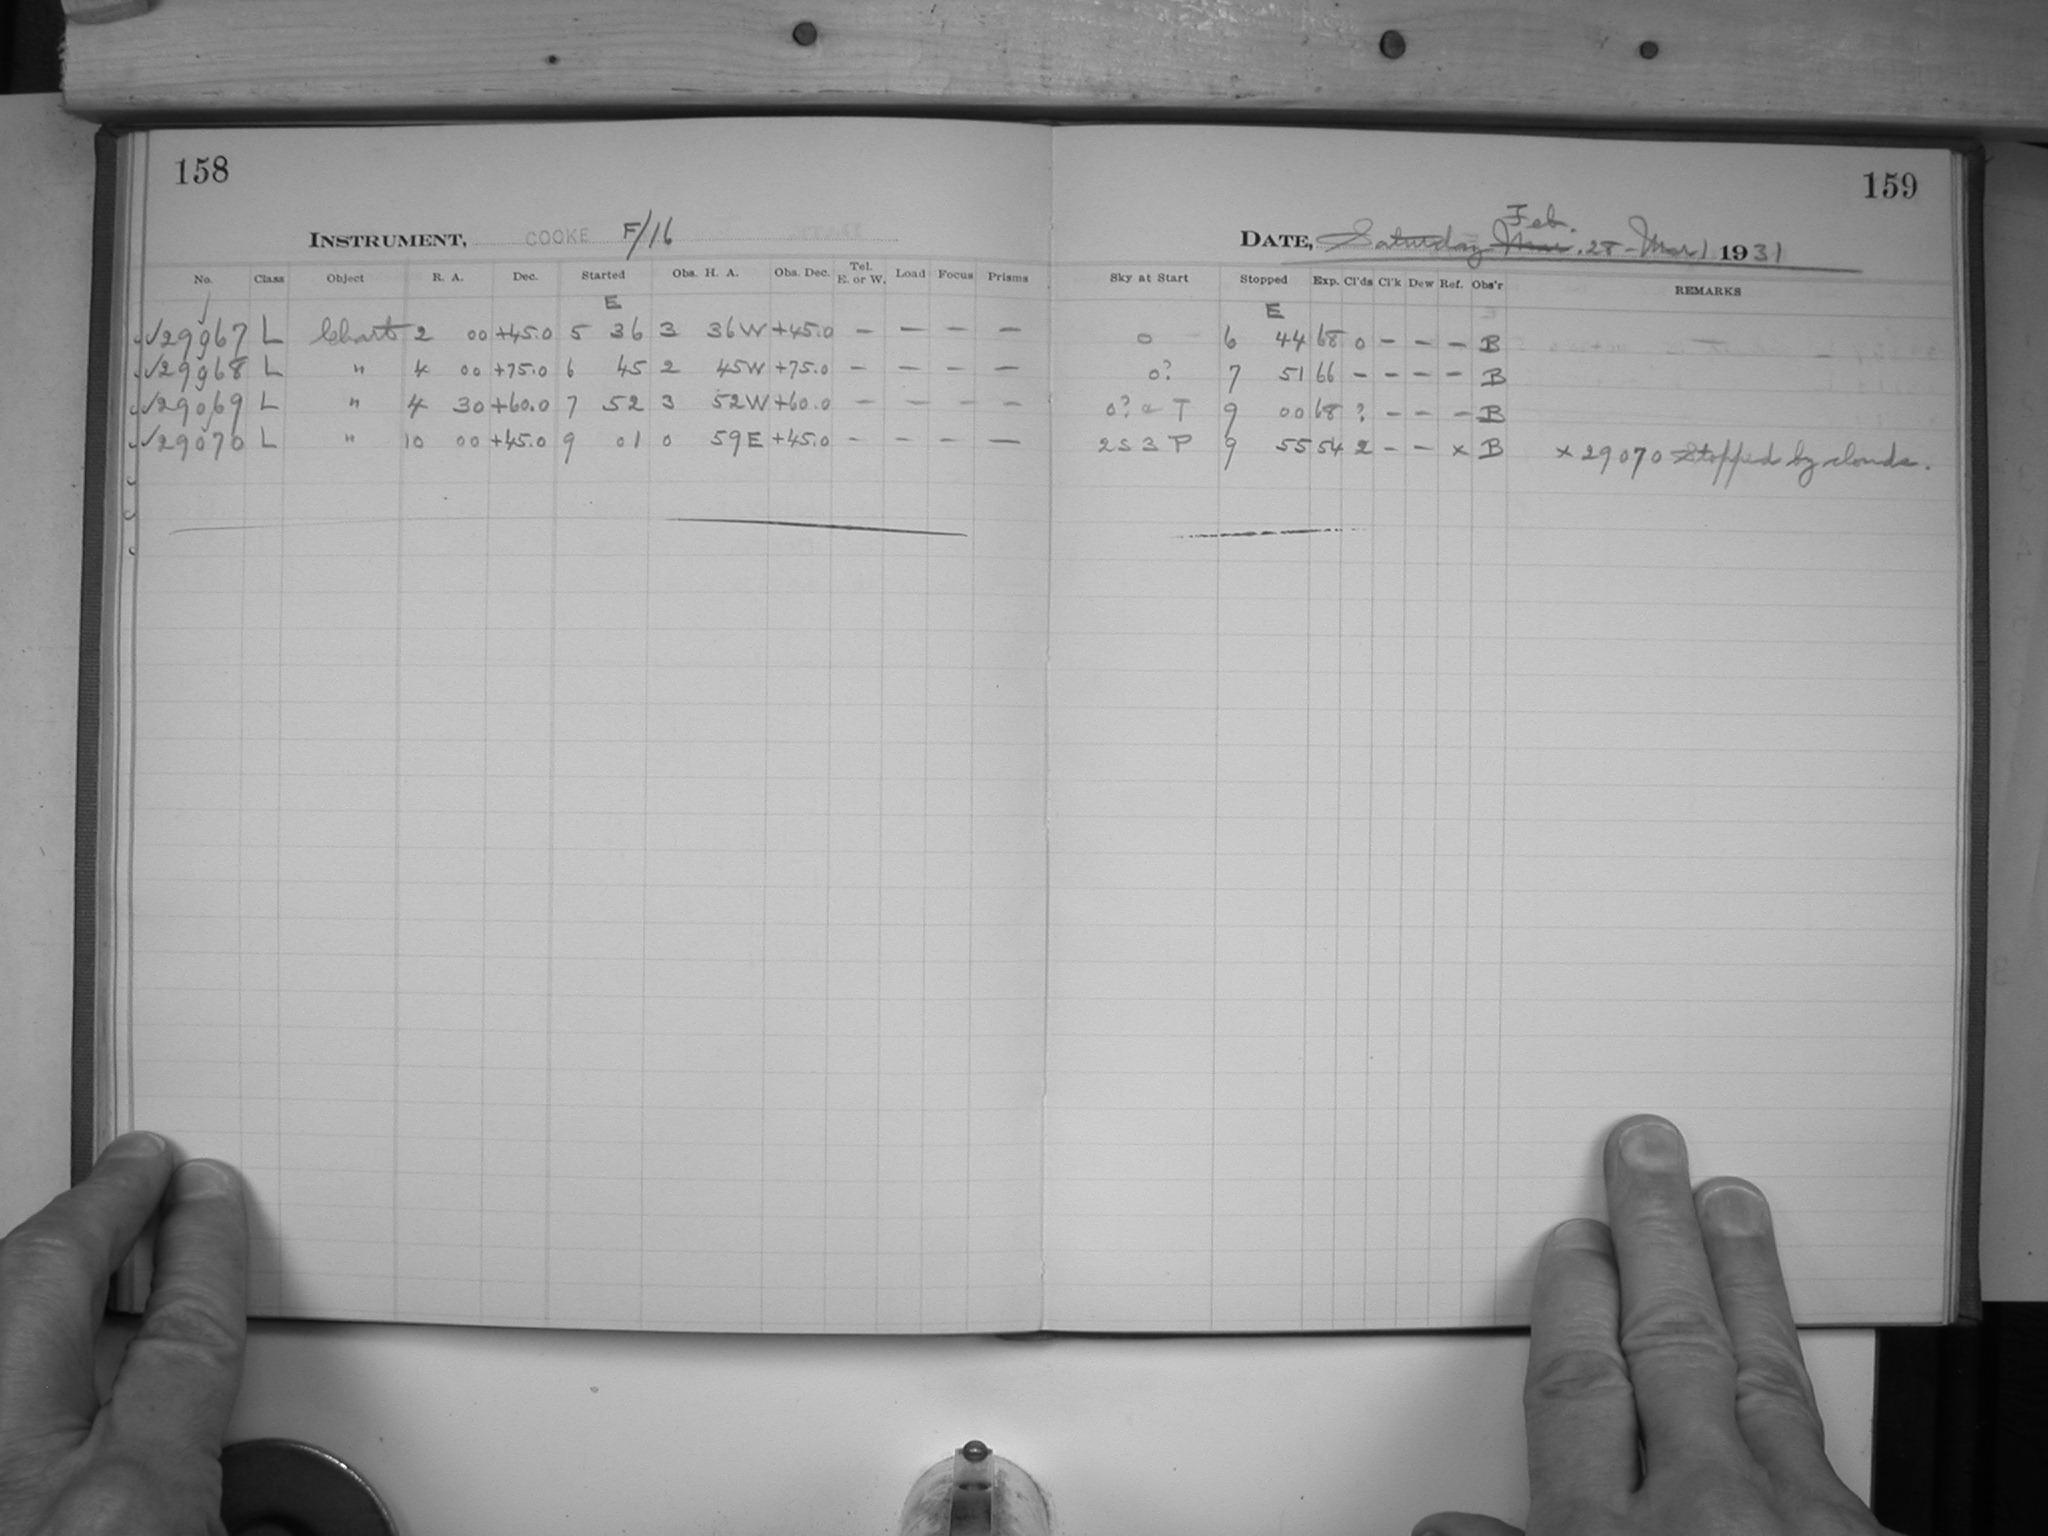 158
INSTRUMENT, COOKE F/16
No. Class Object R. A. Dec. Started Obs. H. A. Obs. Dec. Tel. E. or W. Load Focus Prisms
E
√29967 L Chart 2 00 +45.0 5 36 3 36W +45.0 – – – –
√29968 L " 4 00 +75.0 6 45 2 45W +75.0 – – – –
√29069 L " 4 30 +60.0 7 52 3 52W +60.0 – – – –
√29070 L " 10 00 +45.0 9 01 0 59E +45.0 – – – –
159
Feb.
DATE, Saturday Mar. 28 - Mar 1 1931
Sky at Start Stopped Exp. Cl'ds Cl'k Dew Ref. Obs'r REMARKS
E
0 6 44 68 0 – – – B
0? 7 51 66 – – – – B
0? T 9 00 68 ? – – – B
2 S 3 P 9 55 54 2 – – x B x 29070 Stopped by clouds.